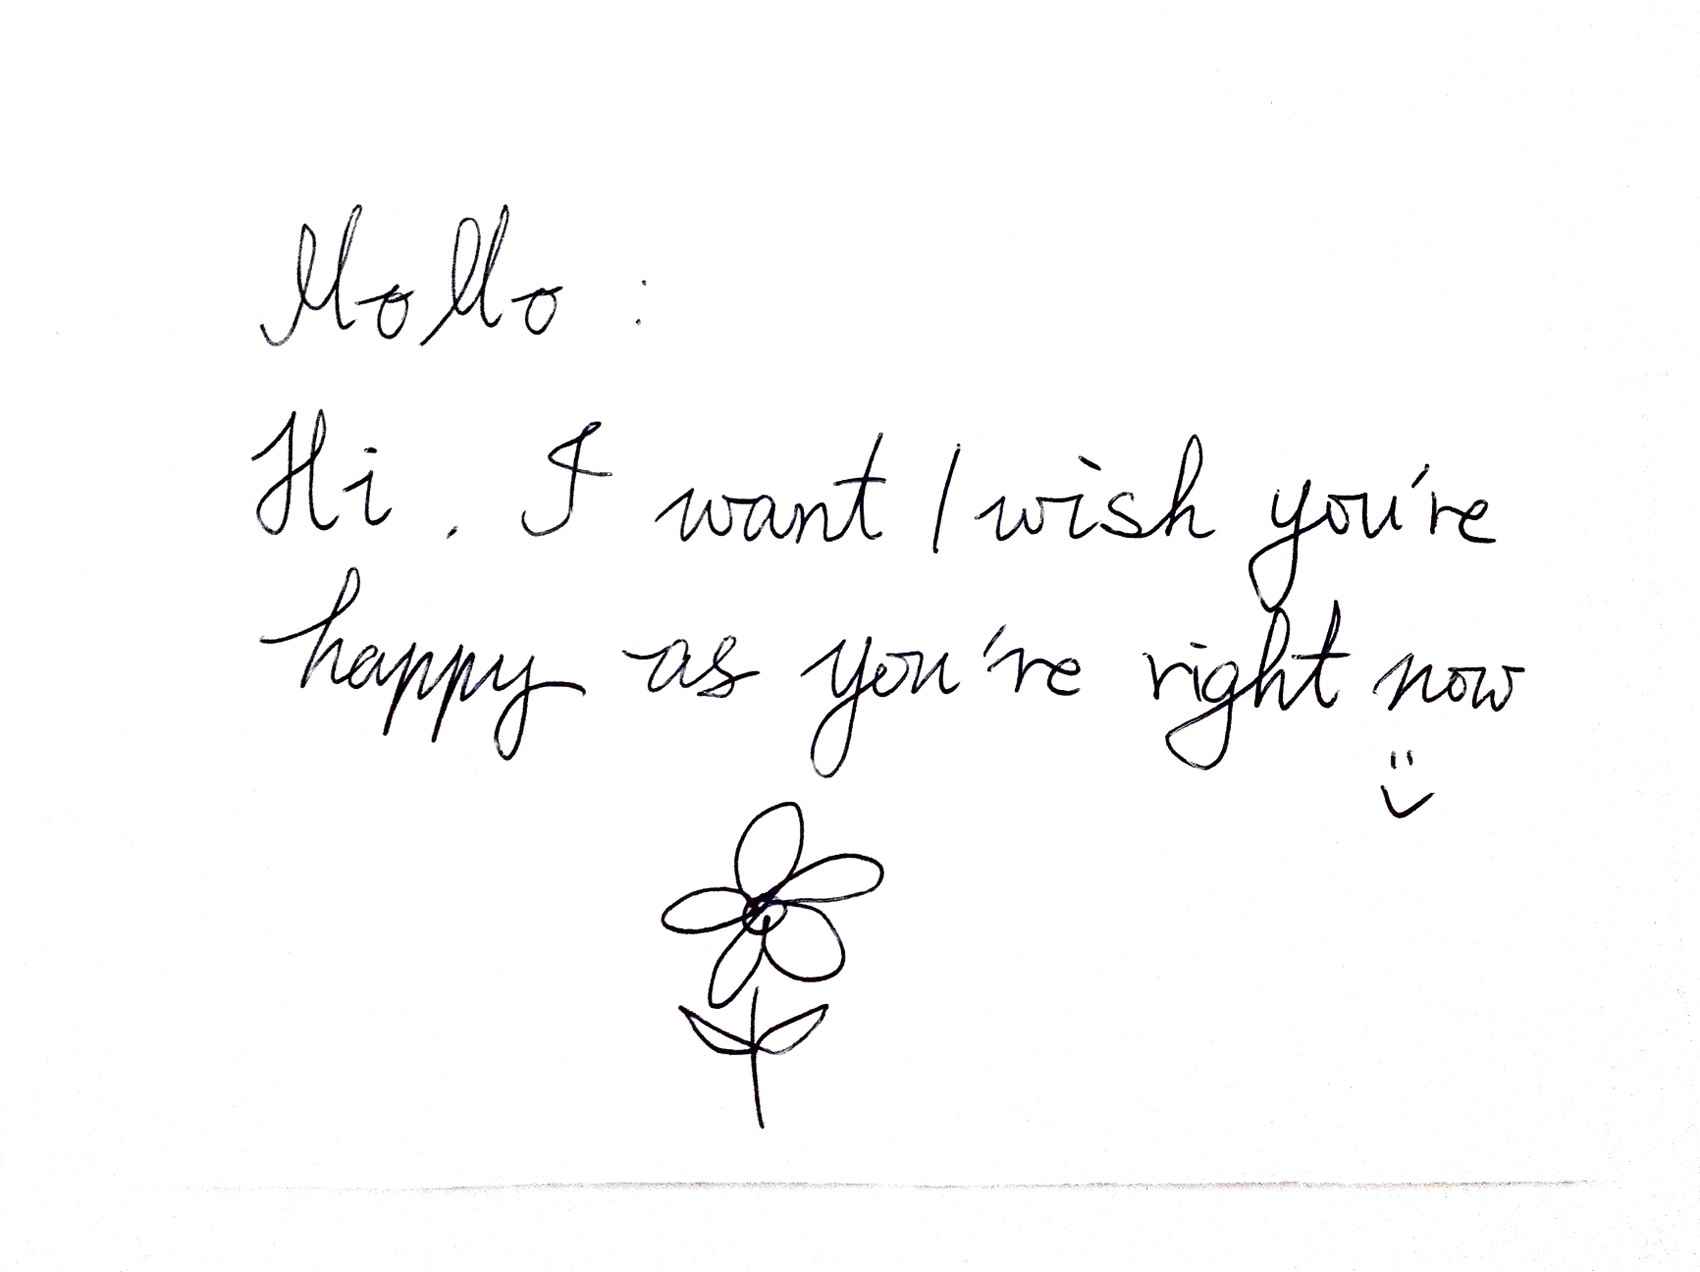 MoMo :
Hi . I want / wish you're
happy as you're right now